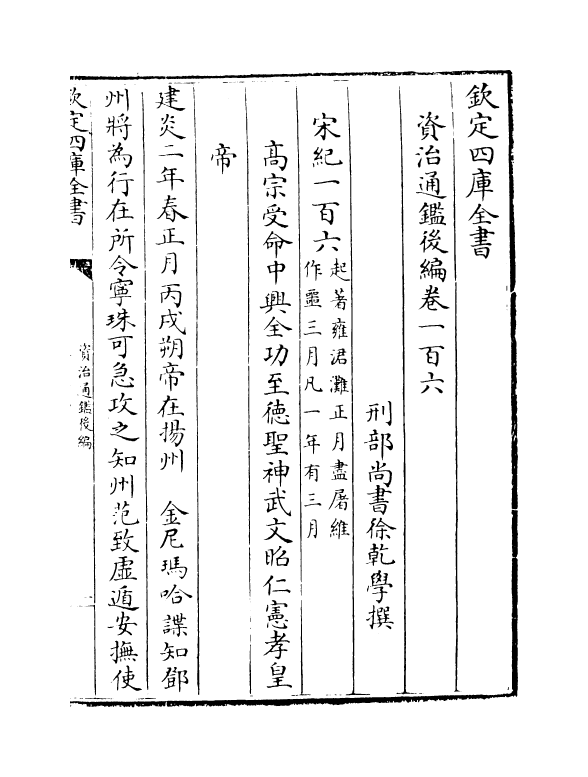 欽定四庫全書
資治通鑑後編卷一百六
刑部尚書徐乾學撰
宋紀一百六起著雍涒灘正月盡屠維
作噩三月凡一年有三月
髙宗受命中興全功至徳聖神武文昭仁憲孝皇
帝
建炎二年春正月丙戌朔帝在揚州　金尼瑪哈諜知鄧
州將為行在所令寧珠可急攻之知州范致虚遁安撫使
欽定四庫全書
資治通鑑後編